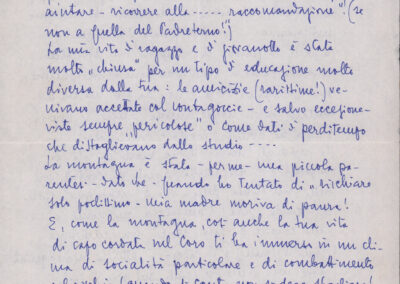 aiutare - ricorrere alla ----- raccomandazione"! (se
non a quella del Padreterno!)
La mia vita di ragazzo e di giovanotto è stata
molto "chiusa" per un tipo di educazione molto
diversa dalla tua: le amicizie (rarissime!) ve-
nivano accettate col contagoccie - e salvo eccezione-
viste sempre "pericolose" o come dati di perditempo
che distoglievano dallo studio ----
La montagna è stata - per me - una piccola pa-
rentesi - dato che - quando ho tentato di "rischiare
solo pochino - mia madre moriva di paura!
E, come la montagna, così anche la tua vita
di capo cordata nel Coro ti ha immerso in un cli-
ma di socialità particolare e di combattimento